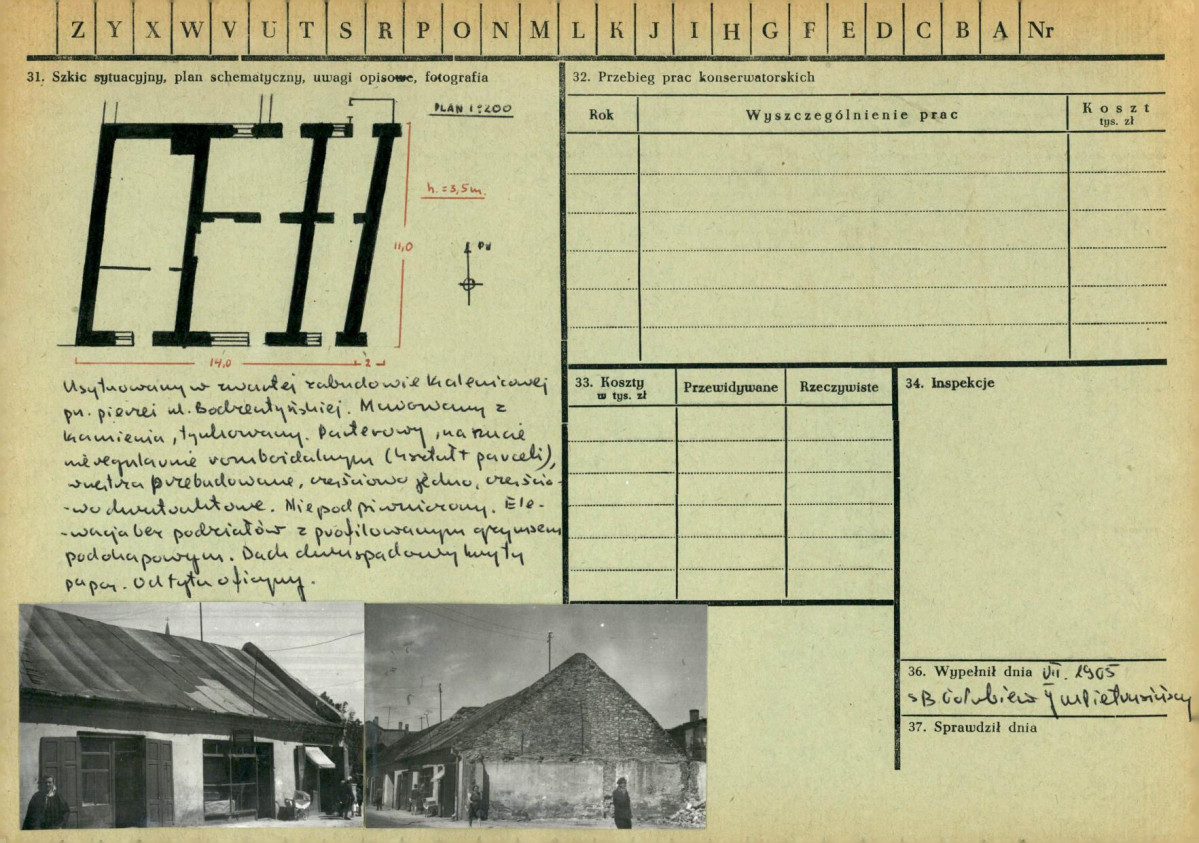 Z Y X W V U T S R P O N M L K J I H G F E D C B A Nr
31. Szkic sytuacyjny, plan schematyczny, uwagi opisowe, fotografia
PLAN 1:200
h. = 3,5 m.
11,0
PN
14,0
2
Usytuowany w zwartej zabudowie kalenicowej
pn. pierzei ul. Bodzentyńskiej. Murowany z
kamienia, tynkowany. Parterowy, na rzucie
nieregularnie romboidalnym (kształt parceli),
wnętrza przebudowane, częściowo jedno, częścio-
-wo dwutraktowe. Niepodpiwniczony. Ele-
-wacja bez podziałów z profilowanym gzymsem
podokapowym. Dach dwuspadowy kryty
papą. Od tyłu oficyny.
32. Przebieg prac konserwatorskich
Rok
Wyszczególnienie prac
Koszt
tys. zł
33. Koszty
w tys. zł
Przewidywane
Rzeczywiste
34. Inspekcje
36. Wypełnił dnia VII.
37. Sprawdził dnia